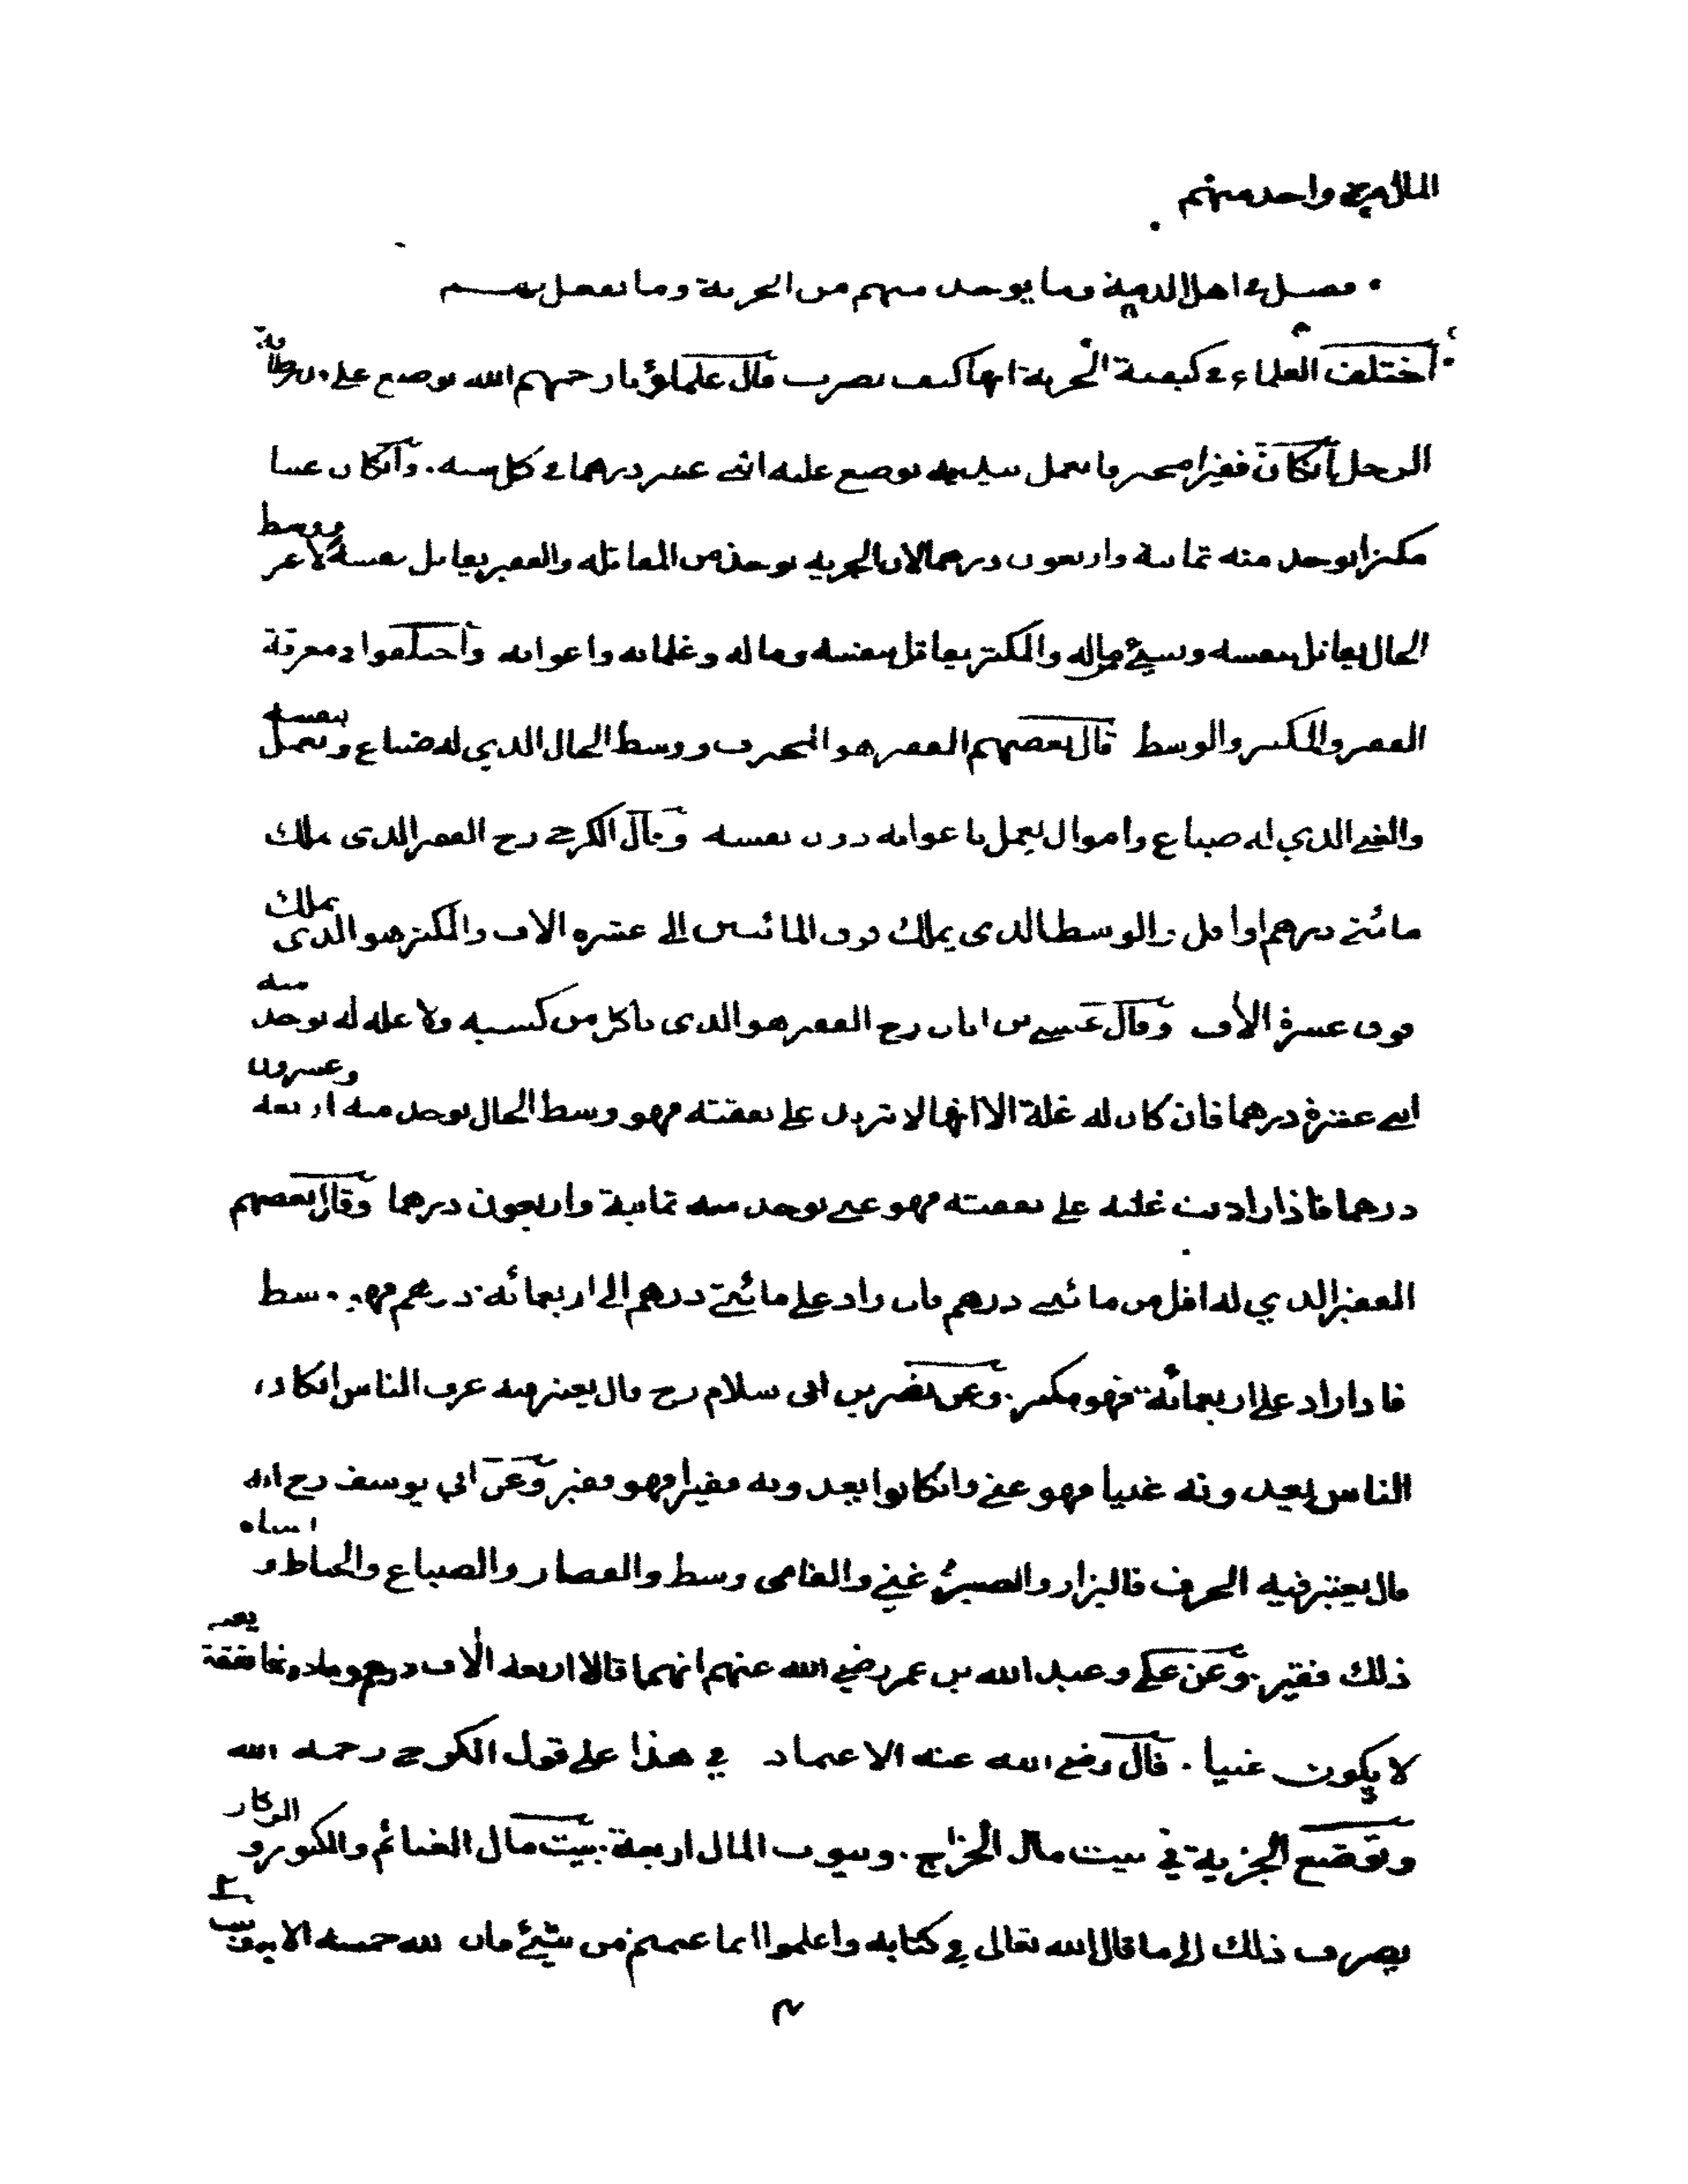 المال من كل واحد منهم
فصل في اهل الذمة وما يوخذ منهم من الجزية وما يفعل بهم
أختلف العلماء في كيفية الجزية انها كيف تضرب قال علماؤنا رحمهم الله توضع على قدر طاقة
الرجل انكان فقيرا محترفا يعمل بيديه توضع عليه اثنى عشر درهما في كل سنة . وانكان غنيا
مكثرا يوخذ منه ثمانية واربعون درهما لان الجزيه توخذ من المقاتله والفقير يقاتل بنفسه لا غير ووسط
الحال يقاتل بنفسه وبشيء من ماله والمكثر يقاتل بنفسه وماله وغلمانه واعوانه واختلفوا في معرفة
الفقير والمكثر والوسط قال بعضهم الفقير هو المحترف ووسط الحال الذي له ضياع ويعمل بنفسه
والغني الذي له ضياع واموال يعمل باعوانه دون نفسه وقال الكرخي رح الفقير الذى يملك
مائتي درهم او اقل والوسط الذى يملك فوق المائتين الى عشره الاف والمكثر هو الذى يملك
فوق عشرة الاف وقال عيسى بن ابان رح الفقير هو الذى ياكل من كسبه ولا غله له يوخذ منه
اثني عشرة درهما فان كان له غلة الا انها لا تزيد على نفقته فهو وسط الحال يوخذ منه اربعه وعشرون
درهما فاذا زادت غلته على نفقته فهو غني يوخذ منه ثمانية واربعون درهما وقال بعضهم
الفقير الذي له اقل من مائتي درهم فان زاد على مائتي درهم الى اربعمائة درهم فهو وسط
فاذا زاد على اربعمائة فهو مكثر . وعن نصر بن ابى سلام رح قال يعتبر فيه عرف الناس انكان
الناس يعدونه غنيا فهو غني وانكانوا يعدونه فقيرا فهو فقير وعن ابي يوسف رح انه
قال يعتبر فيه الحرف فالبزاز والصيرفي غني والفامى وسط والقصار والصباغ والخياط و اشباه
ذلك فقير . وعن علي وعبد الله بن عمر رضي الله عنهم انهما قالا اربعه الاف درهم وما دونها نفقة يعنى
لا يكون غنيا . قال رضي الله عنه الاعتماد في هذا على قول الكرخي رحمه الله
وتوضع الجزية في بيت مال الخراج . وبيوت المال اربعة . بيت مال الغنائم والكنوز و الركاز
يصرف ذلك الى ما قال الله تعالى في كتابه واعلموا انما غنمتم من شيئ فان لله خمسه الاية